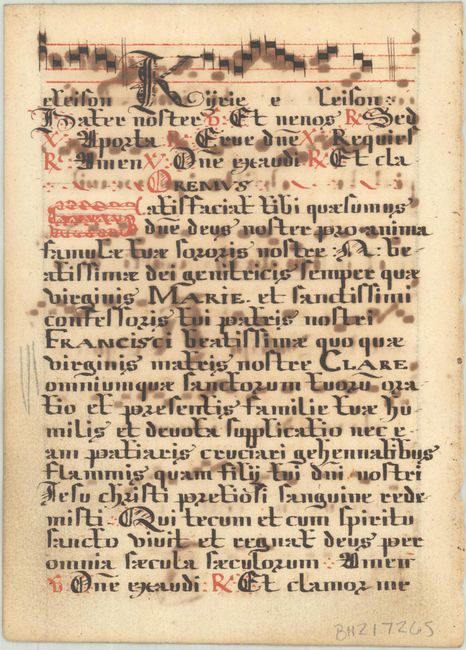 eleison Kyrie e leison:
Pater noster ℣. Et nenos ℟. Sed
℣. Aporta ℟. Erue dn̄e ℣. Requies
℟. Amen ℣. Dn̄e exaudi ℟. Et cla
OREMVS
Satisfaciat tibi quæsumus
dn̄e deus noster pro anima
famulæ tuæ sororis nostre N. be-
atissimæ dei genitricis semper quæ
virginis MARIE. et sanctissimi
confessoris tui patris nostri
FRANCISCI beatissimæ quo quæ
virginis matris nostre CLARE
omniumquæ sanctorum tuorū ora
tio et presentis familie tuæ hu
milis et devota supplicatio nec e-
am patiaris cruciari gehennalibus
flammis quam filij tui dn̄i nostri
Jesu christi pretiosi sanguine rede
misti. Qui tecum et cum spiritu
sancto vivit et regnat deus per
omnia sæcula sæculorum. Amen
℣. Dn̄e exaudi. ℟. Et clamor me
BH217265